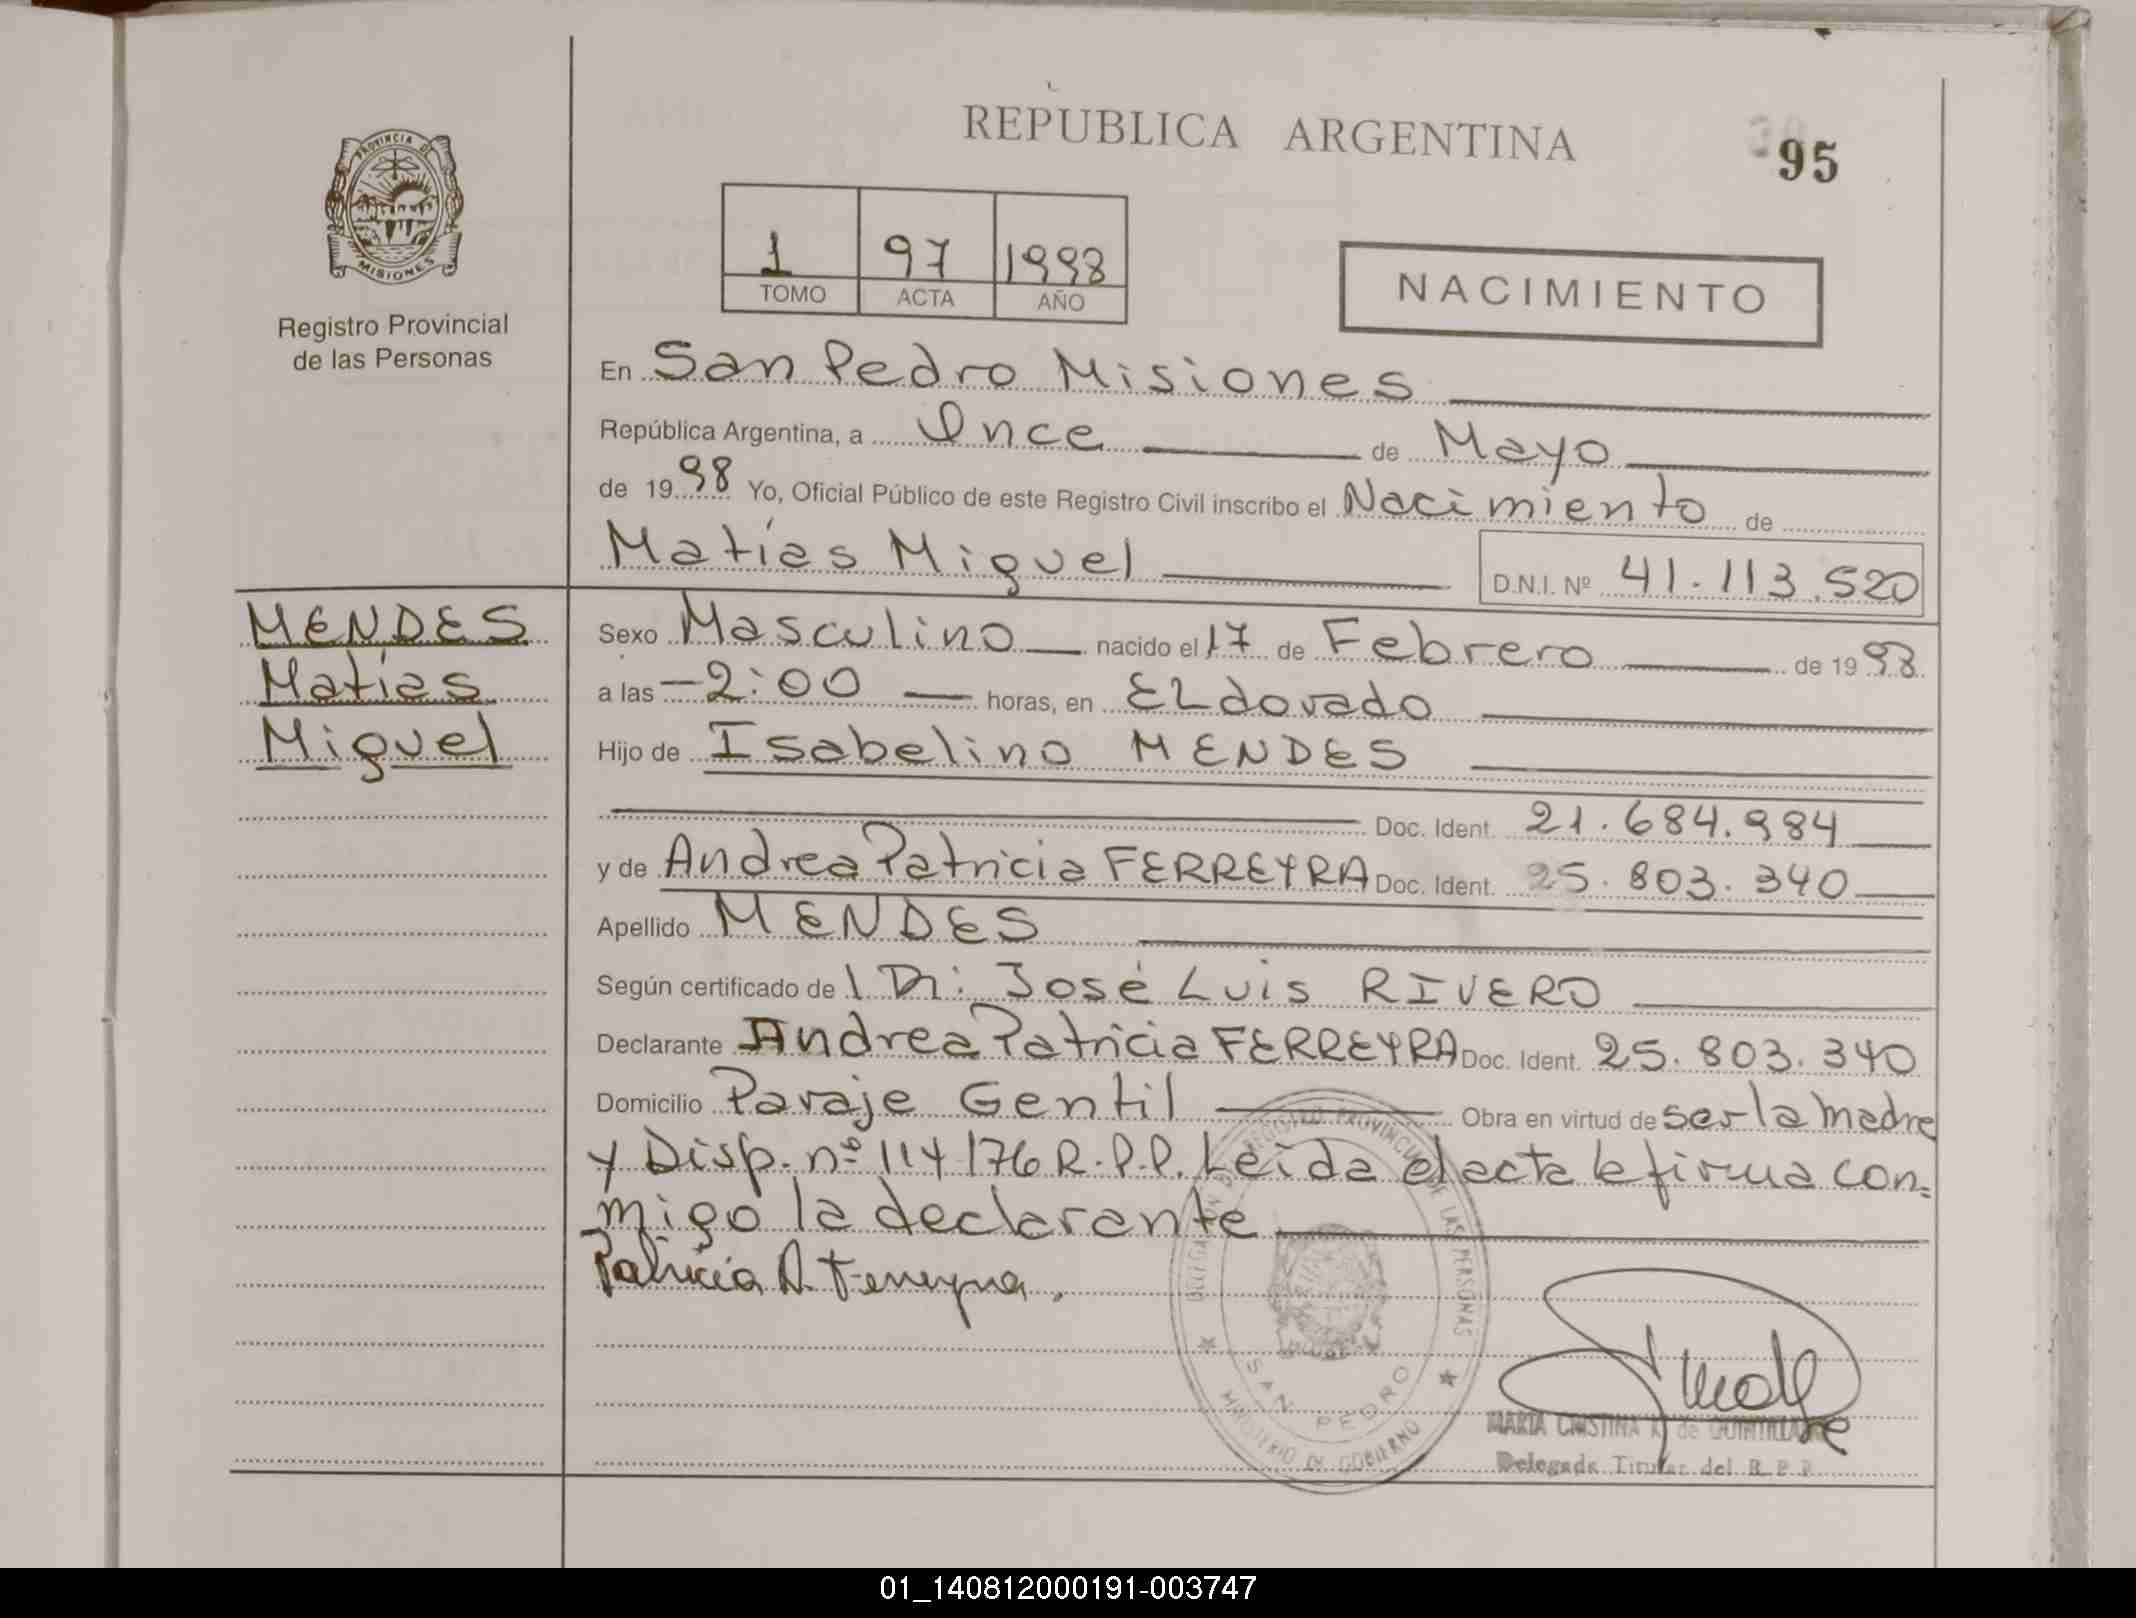 REPUBLICA ARGENTINA
95
PROVINCIA DE
MISIONES
Registro Provincial
de las Personas
1 97 1998
TOMO ACTA AÑO
NACIMIENTO
En San Pedro Misiones
República Argentina, a Once de Mayo
de 1998 Yo, Oficial Público de este Registro Civil inscribo el Nacimiento de
Matías Miguel D.N.I. Nº 41.113.520
MENDES
Matías
Miguel
Sexo Masculino nacido el 17 de Febrero de 1998
a las -2:00 horas, en ELdorado
Hijo de Isabelino MENDES
Doc. Ident. 21.684.984
y de Andrea Patricia FERREYRA Doc. Ident. 25.803.340
Apellido MENDES
Según certificado de l Dr: José Luis RIVERO
Declarante Andrea Patricia FERREYRA Doc. Ident. 25.803.340
Domicilio Paraje Gentil Obra en virtud de ser la madre
y Disp. nº 114/76 R.P.P. Leída el acta la firma con=
migo la declarante
Patricia A. Ferreyra.
REGISTRO PROVINCIAL DE LAS PERSONAS
SAN PEDRO
MINISTERIO DE GOBIERNO
MARIA CRISTINA K. de
Delegada Titular del R.P.P.
01_140812000191-003747